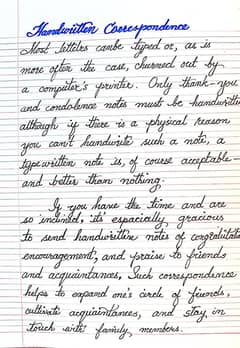 Handwritten Correspondence
Most letters canbe typed or, as is
more often the case, churned out by
a computer's printer. Only thank-you
and condolence notes must be handwritten
although if there is a physical reason
you can't handwrite such a note, a
typewritten note is, of course acceptable
and better than nothing.
If you have the time and are
so inclined, its' espacially, gracious
to send handwritten notes of congratulations
encouragement, and praise to friends
and acquaintances, Such correspondence
helps to expand one's circle of friends,
cultivate acquaintances, and stay in
touch with family, members.